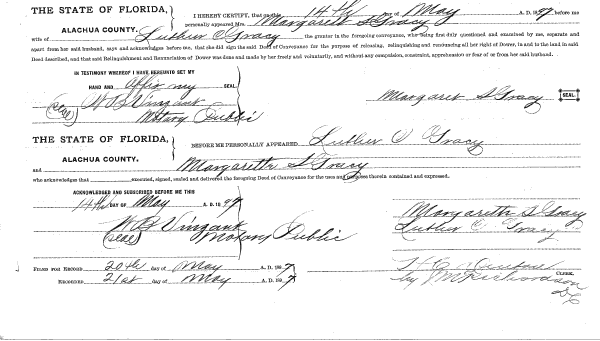 THE STATE OF FLORIDA,
ALACHUA COUNTY.
I HEREBY CERTIFY, that on this 14th day of May A. D. 1897, before me
personally appeared Mrs. Margaret S Gracy
wife of Luther C Gracy the grantor in the foregoing conveyance, who being first duly questioned and examined by me, separate and
apart from her said husband, says and acknowledges before me, that she did sign the said Deed of Conveyance for the purpose of releasing, relinquishing and renouncing all her right of Dower, in and to the land in said
Deed described, and that said Relinquishment and Renunciation of Dower was done and made by her freely and voluntarily, and without any compulsion, constraint, apprehension or fear of or from her said husband.
IN TESTIMONY WHEREOF I HAVE HEREUNTO SET MY
HAND AND Affix my SEAL.
(Seal) Notary Public
Margaret S Gracy SEAL
THE STATE OF FLORIDA,
ALACHUA COUNTY.
BEFORE ME PERSONALLY APPEARED Luther C Gracy
and Margaretta S Gracy
who acknowledges that executed, signed, sealed and delivered the foregoing Deed of Conveyance for the uses and purposes therein contained and expressed.
ACKNOWLEDGED AND SUBSCRIBED BEFORE ME THIS
14th DAY OF May A. D. 1897
(Seal) Notary Public
Margaretta S Gracy
Luther C Gracy
FILED FOR RECORD 20th day of May A. D. 1897
RECORDED 21st day of May A. D. 1897
CLERK.
by Richardson
D C